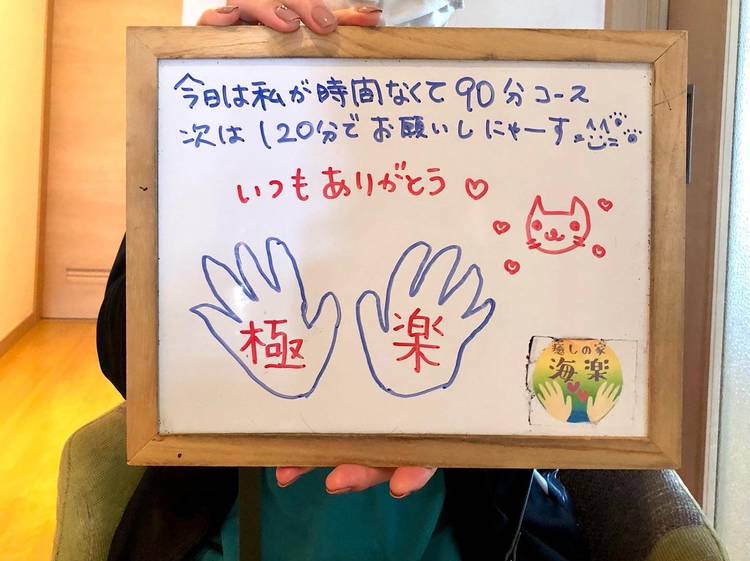 今日は私が時間なくて90分コース
次は120分でお願いしにゃーす
いつもありがとう♡
極
楽
癒しの家
海楽